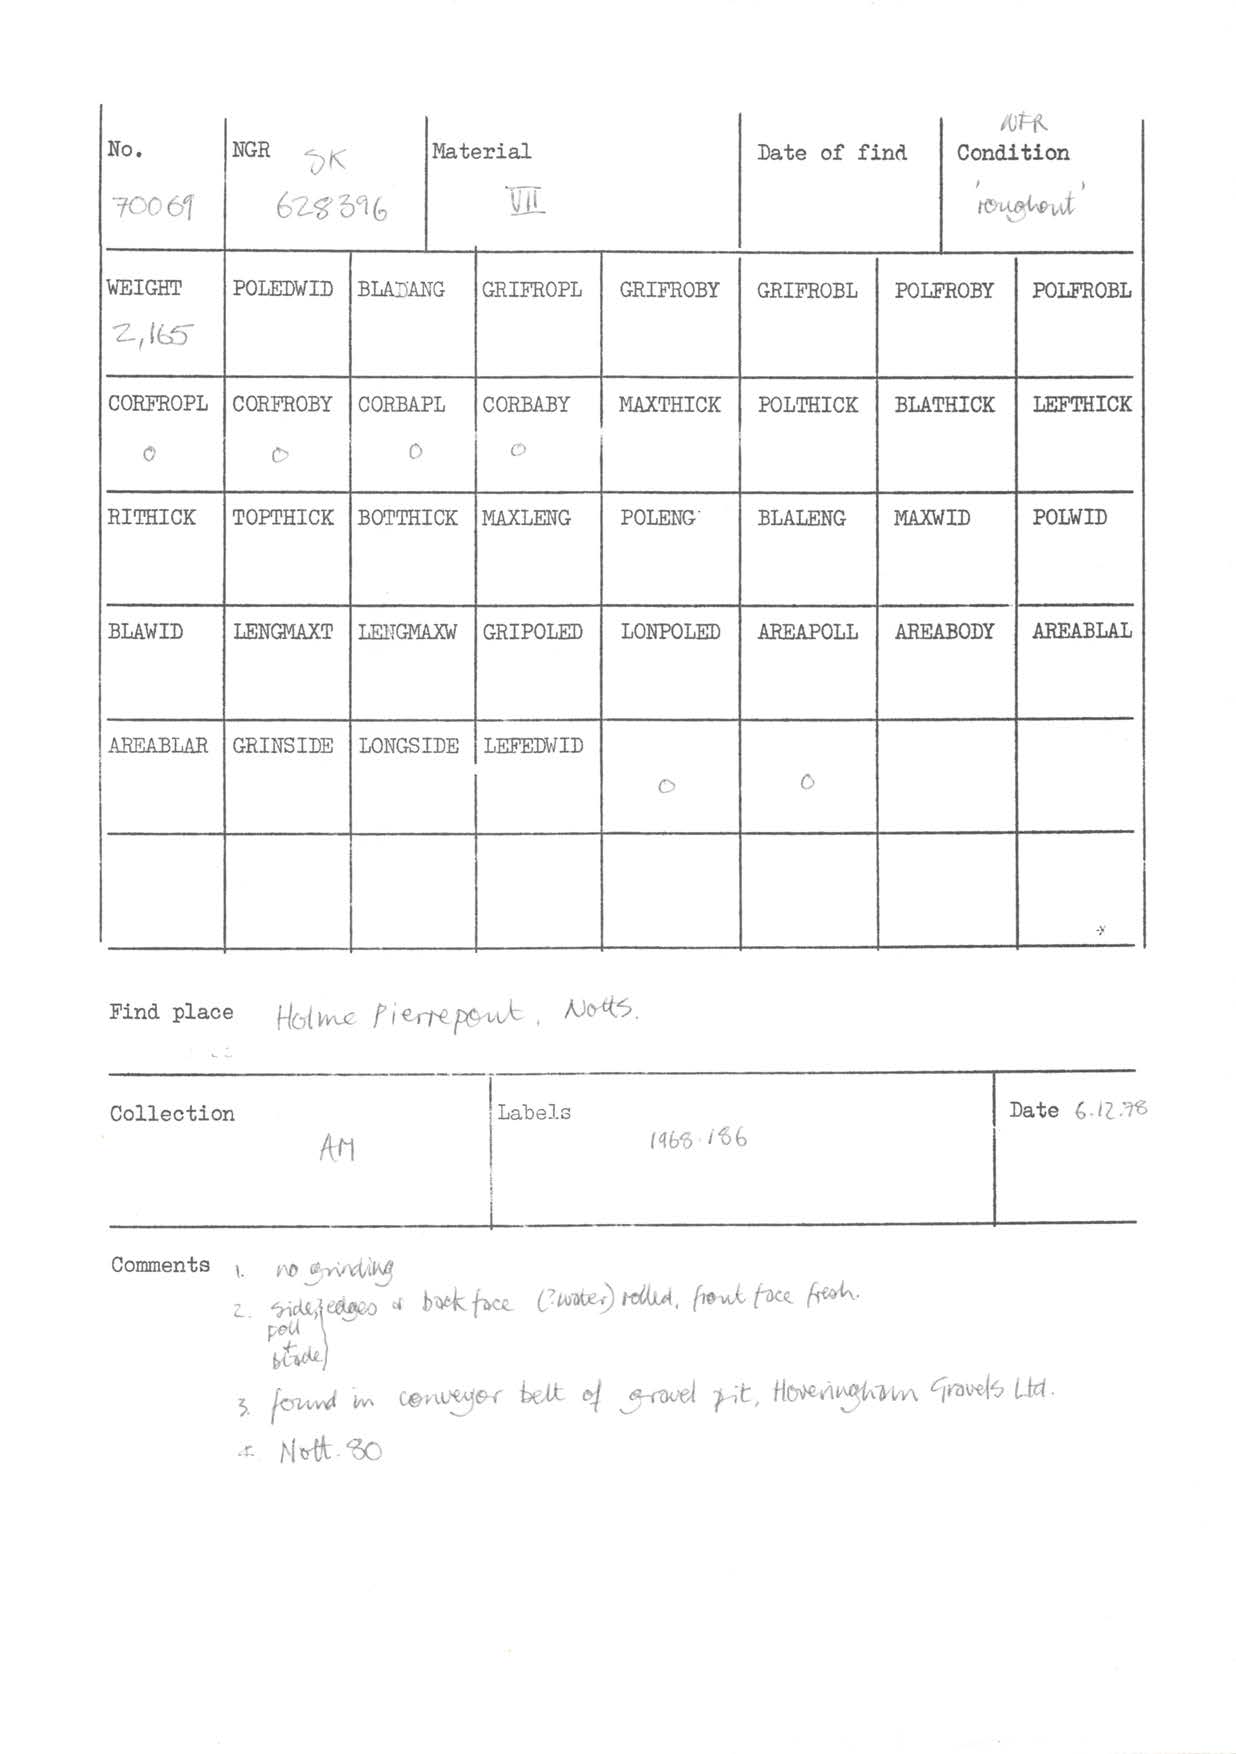 WFR
No. NGR SK Material Date of find Condition
70069 628396 VII 'roughout'
WEIGHT POLEDWID BLADANG GRIFROPL GRIFROBY GRIFROBL POLFROBY POLFROBL
2,165
CORFROPL CORFROBY CORBAPL CORBABY MAXTHICK POLTHICK BLATHICK LEFTHICK
0 0 0 0
RITHICK TOPTHICK BOTTHICK MAXLENG POLENG BLALENG MAXWID POLWID
BLAWID LENGMAXT LENGMAXW GRIPOLED LONPOLED AREAPOLL AREABODY AREABLAL
AREABLAR GRINSIDE LONGSIDE LEFEDWID
0 0
Find place Holme Pierrepont, Notts.
Collection Labels Date 6.12.78
AM 1968.186
Comments 1. no grinding
2. side, edges & back face (?water) rolled, front face fresh.
poll
+
blade
3. found in conveyor belt of gravel pit, Hoveringham Gravels Ltd.
4. Nott. 80